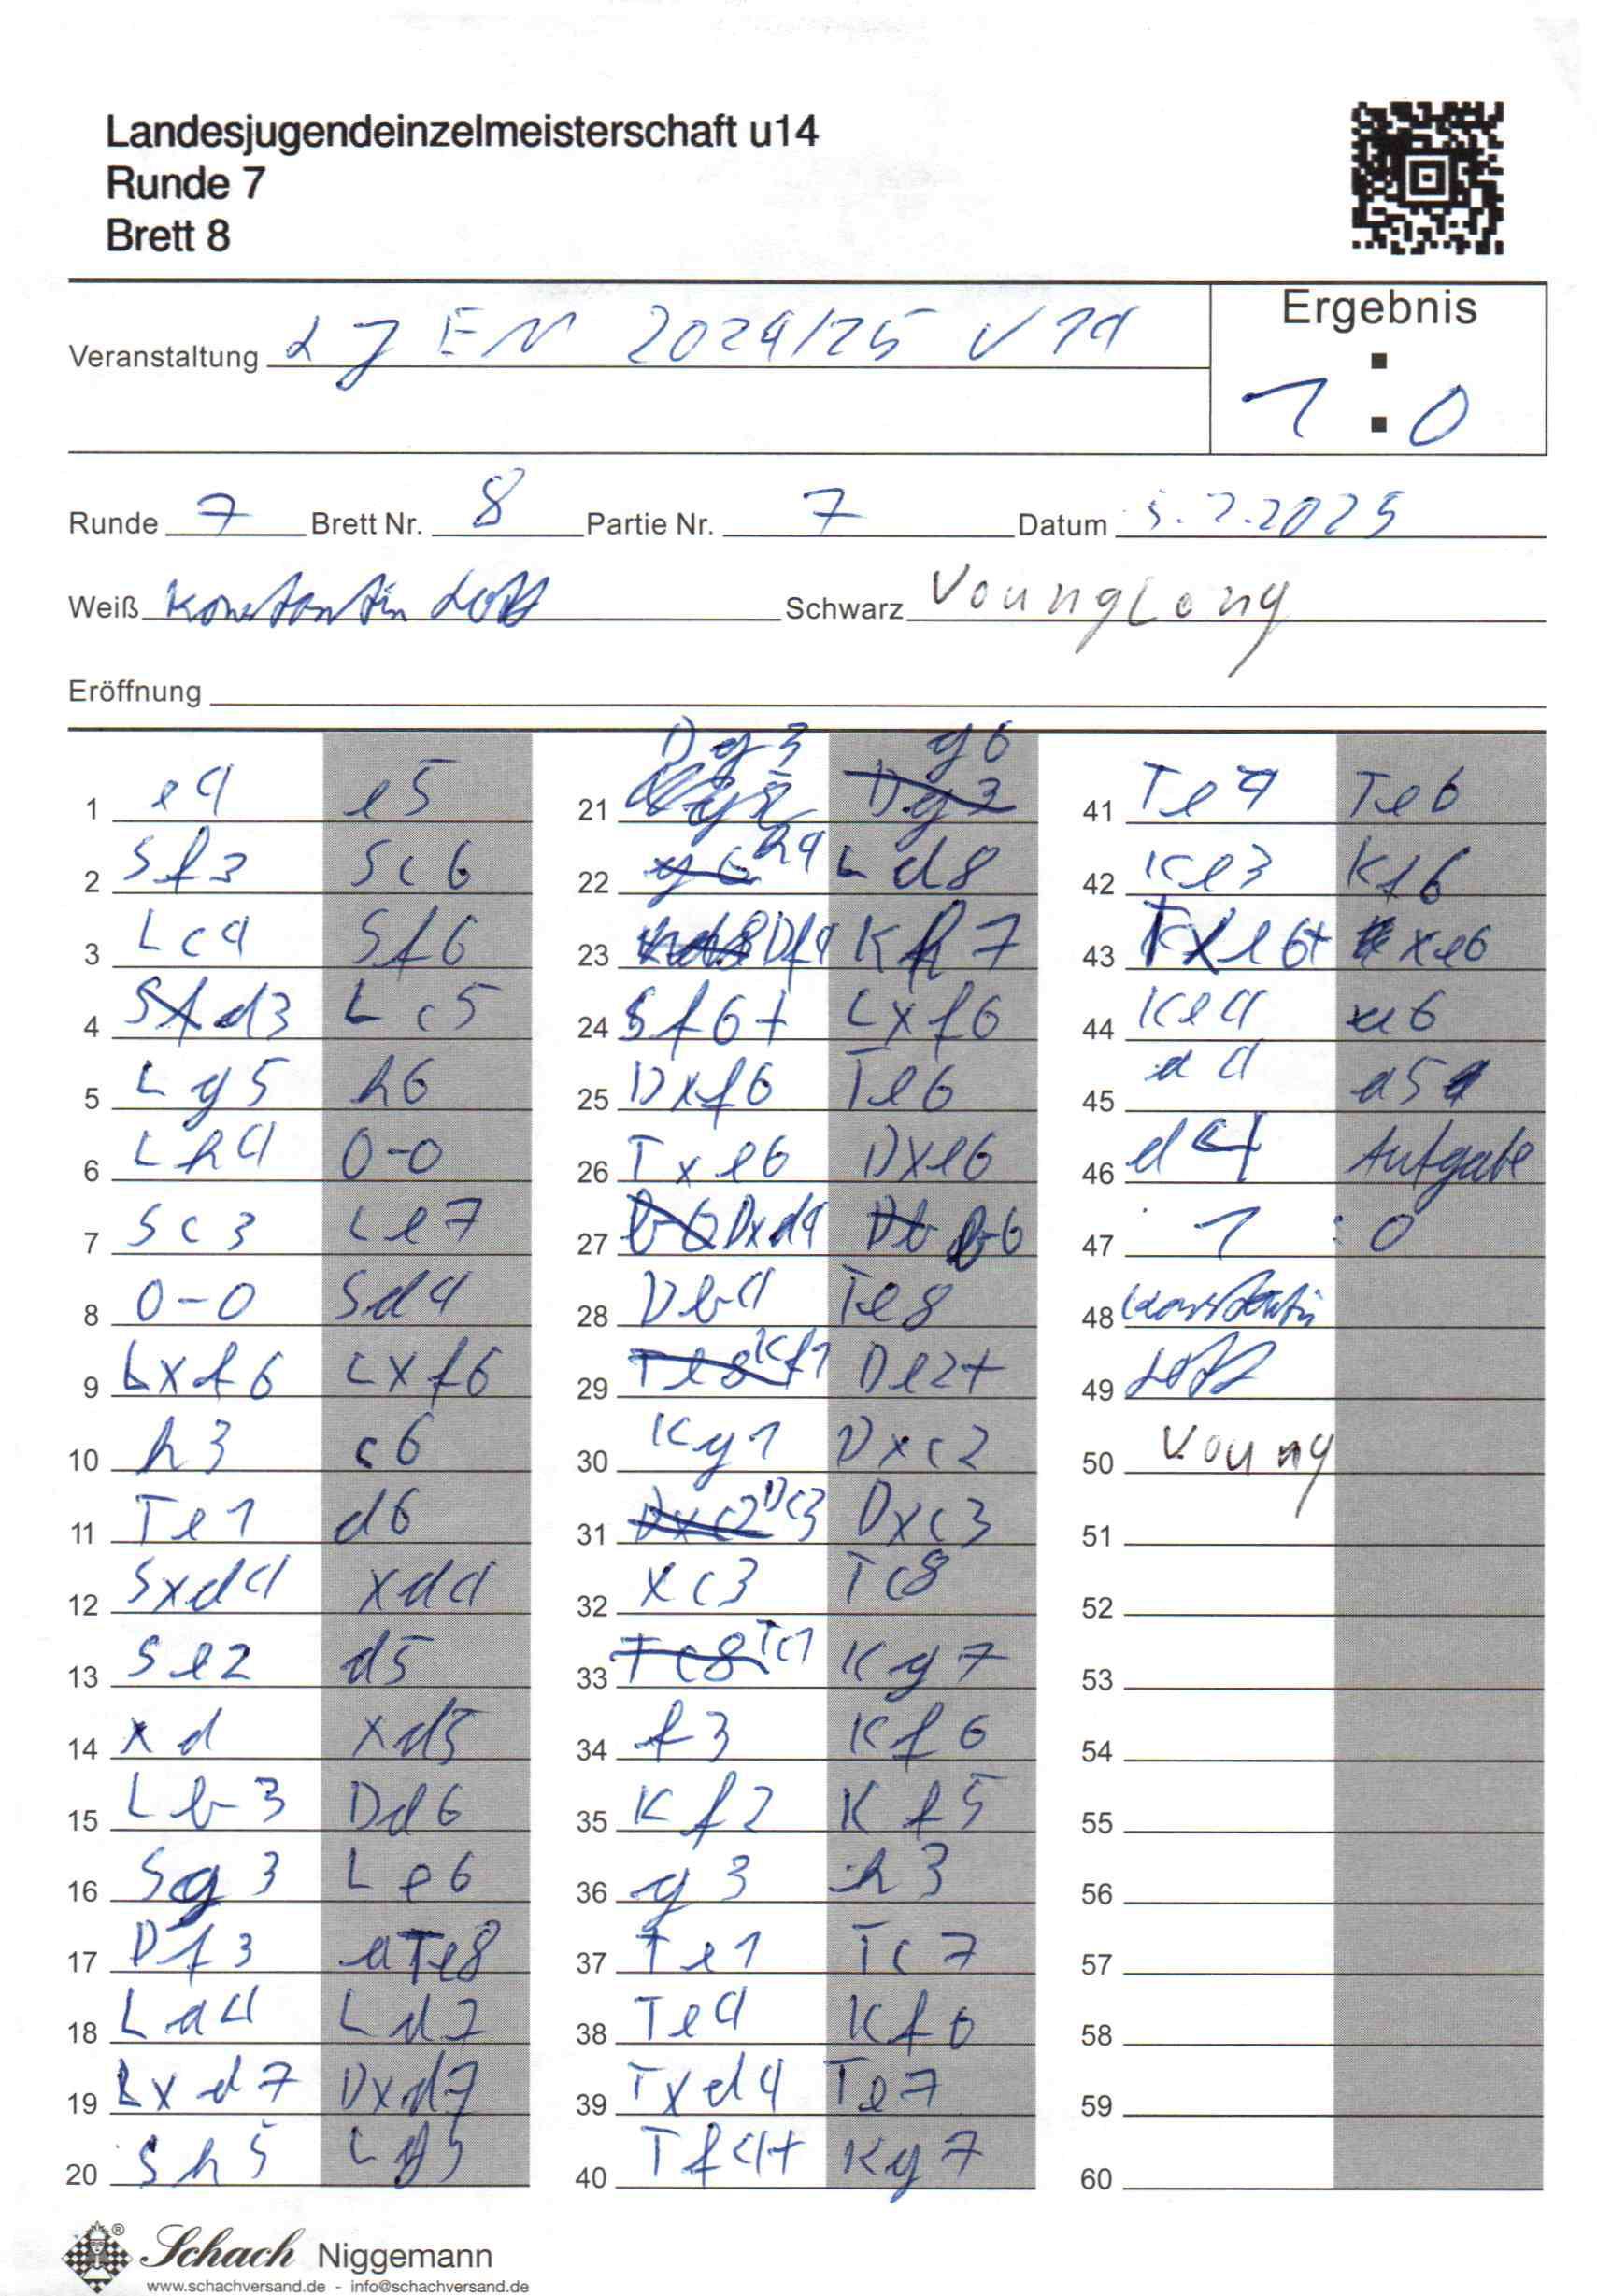 Landesjugendeinzelmeisterschaft u14
Runde 7
Brett 8
Ergebnis
Veranstaltung LJEM 2024/25 U14
1 : 0
Runde 7 Brett Nr. 8 Partie Nr. 7 Datum 5.2.2025
Weiß Konstantin Schwarz YoungLong
Eröffnung
1 e4 e5
2 Sf3 Sc6
3 Lc4 Sf6
4 d3 Lc5
5 Lg5 h6
6 Lh4 0-0
7 Sc3 Le7
8 0-0 Sd4
9 Lxf6 Lxf6
10 h3 c6
11 Te1 d6
12 Sxd4 xd4
13 Se2 d5
14 xd xd5
15 Lb3 Dd6
16 Sg3 Le6
17 Df3 aTe8
18 La4 Ld7
19 Lxd7 Dxd7
20 Sh5 Lg5
21 Dg3 g6
22 h4 Ld8
23 Df4 Kh7
24 Sf6+ Lxf6
25 Dxf6 Te6
26 Txe6 Dxe6
27 Dxd4 b6
28 Db4 Te8
29 Kf1 De2+
30 Kg1 Dxc2
31 Dc3 Dxc3
32 xc3 Tc8
33 Tc1 Kg7
34 f3 Kf6
35 Kf2 Kf5
36 g3 h3
37 Te1 Tc7
38 Te4 Kf6
39 Txd4 Te7
40 Tf4+ Kg7
41 Te4 Te6
42 Ke3 Kf6
43 Txe6+ xe6
44 Ke4 a6
45 a4 a5
46 d4 Aufgabe
47 1 : 0
48 Konstantin
49
50 Young
51
52
53
54
55
56
57
58
59
60
Schach Niggemann
www.schachversand.de - info@schachversand.de